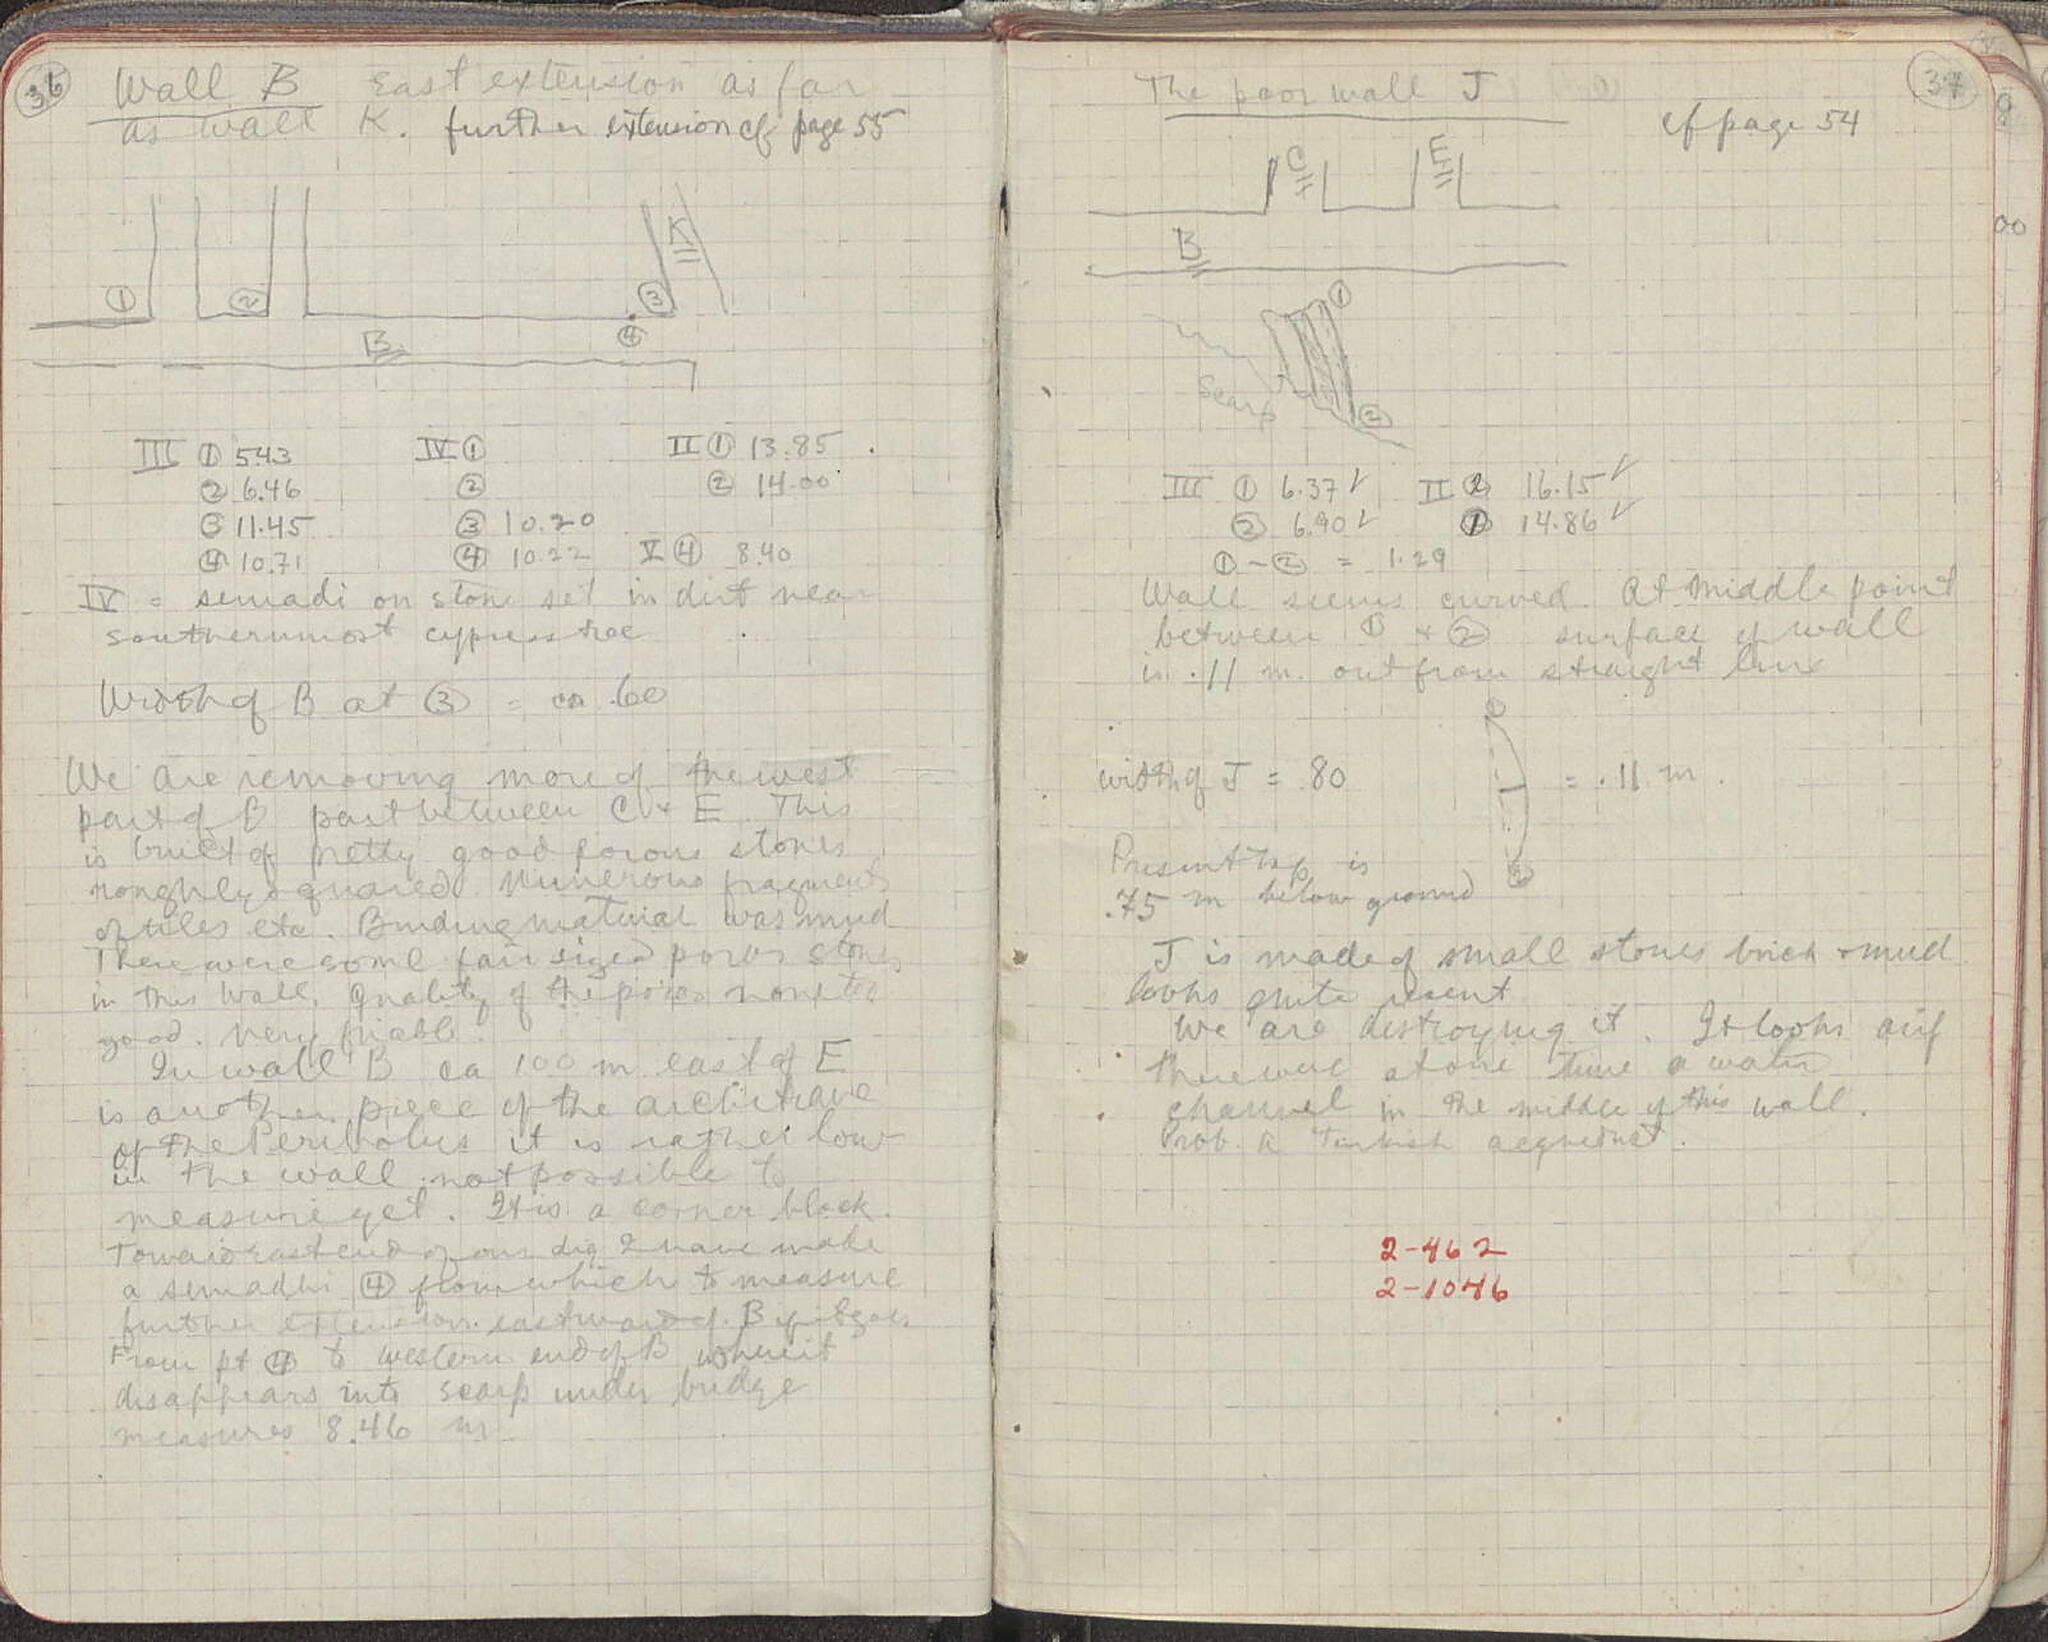 36
Wall B East extension as far
as wall K. further extension cf page 55
K
① ② ③
④
B
III ① 5.43 IV ① II ① 13.85
② 6.46 ② ② 14.00
③ 11.45 ③ 10.20
④ 10.71 ④ 10.22 V ④ 8.40
IV = semadi on stone set in dirt near
southernmost cypress tree
Width of B at ③ = ca .60
We are removing more of the west
part of B part between C + E This
is built of pretty good porous stones
roughly squared. Numerous fragments
of tiles etc. Binding material was mud
There were some fair sized poros stones
in this wall. Quality of the poros none too
good. Very friable.
In wall B ca 100 m east of E
is another piece of the architrave
of the Peribolus it is rather low
in the wall not possible to
measure yet. It is a corner block.
Toward east end of our dig I have made
a semadhi ④ from which to measure
further extension eastward of B if it goes
From pt ④ to western end of B where it
disappears into scarp under bridge
measures 8.46 m
37
The poor wall J
cf page 54
C E
B
①
Scarp
②
III ① 6.37 √ II ② 16.15 √
② 6.90 √ ① 14.86 √
① - ② = 1.29
Wall seems curved. At middle point
between ① + ② surface of wall
is .11 m. out from straight line
width of J = .80
= .11 m.
Present top is
.75 m below ground
J is made of small stones brick + mud
looks quite recent
We are destroying it. It looks as if
there were at one time a water
channel in the middle of this wall.
Prob. a Turkish aqueduct.
2-462
2-1046